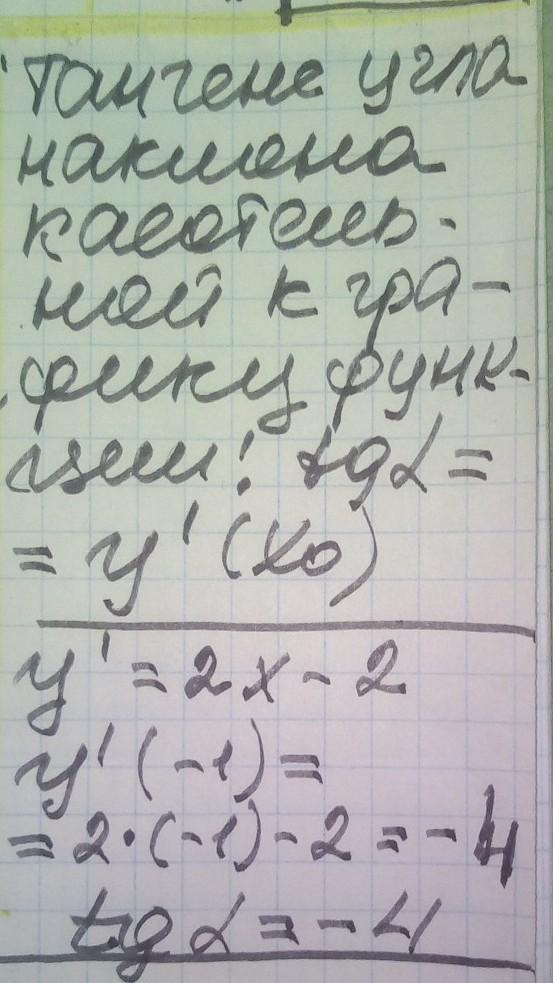 Тангенс угла
наклона
касатель-
ной к гра-
фику функ-
ции: tgα =
= y'(x₀)
y' = 2x - 2
y'(-1) =
= 2·(-1) - 2 = -4
tg α = -4